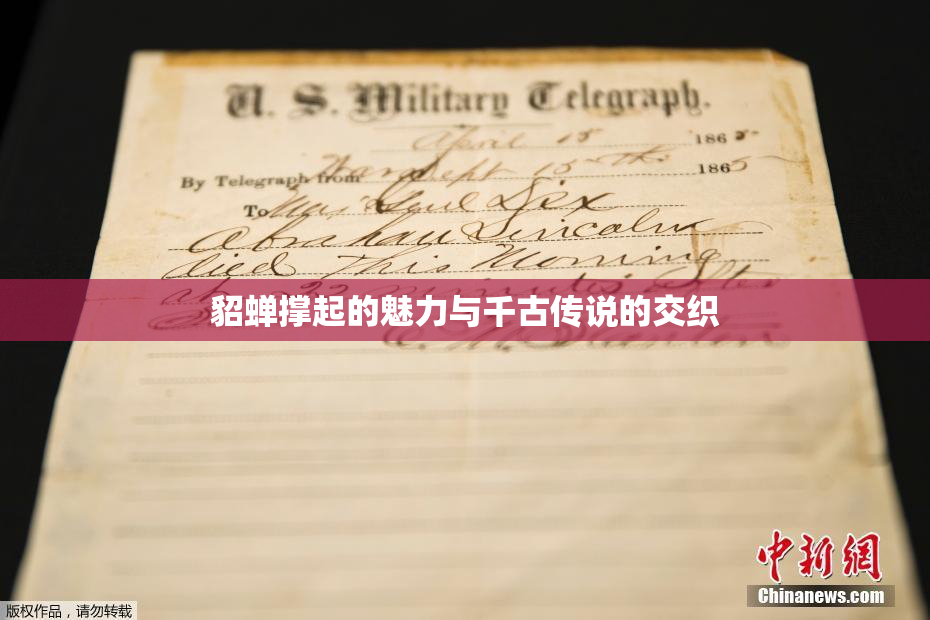 U. S. Military Telegraph.
April 15 1865
By Telegraph from War Dept 15th 1865
To Maj Genl Dix
Abraham Lincoln
died This Morning
at 22 minutes after
貂蝉撑起的魅力与千古传说的交织
E. M. Stanton
中新网
Chinanews.com
版权作品，请勿转载